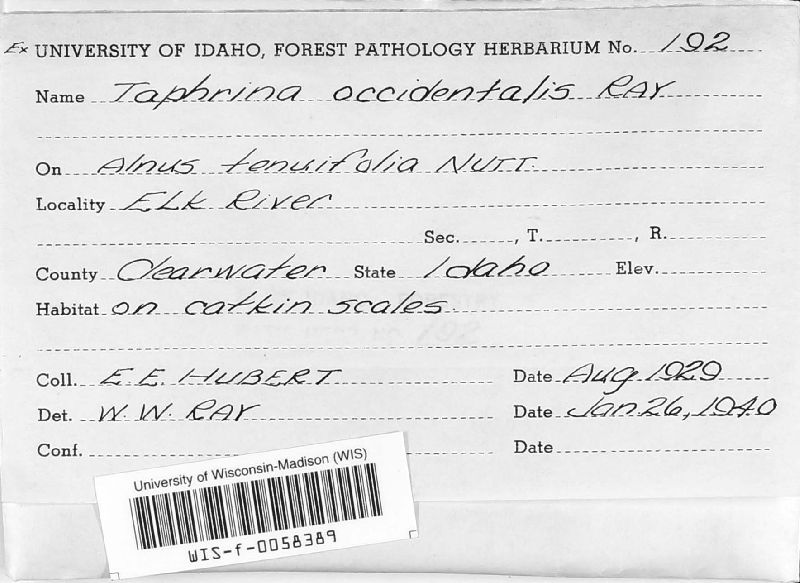 Ex UNIVERSITY OF IDAHO, FOREST PATHOLOGY HERBARIUM No. 192
Name Taphrina occidentalis RAY
On Alnus tenuifolia NUTT.
Locality ELK River
Sec. , T. , R.
County Clearwater State Idaho Elev.
Habitat on catkin scales
Coll. E. E. HUBERT Date Aug 1929
Det. W. W. RAY Date Jan 26, 1940
Conf. Date
University of Wisconsin-Madison (WIS)
WIS-f-0058389